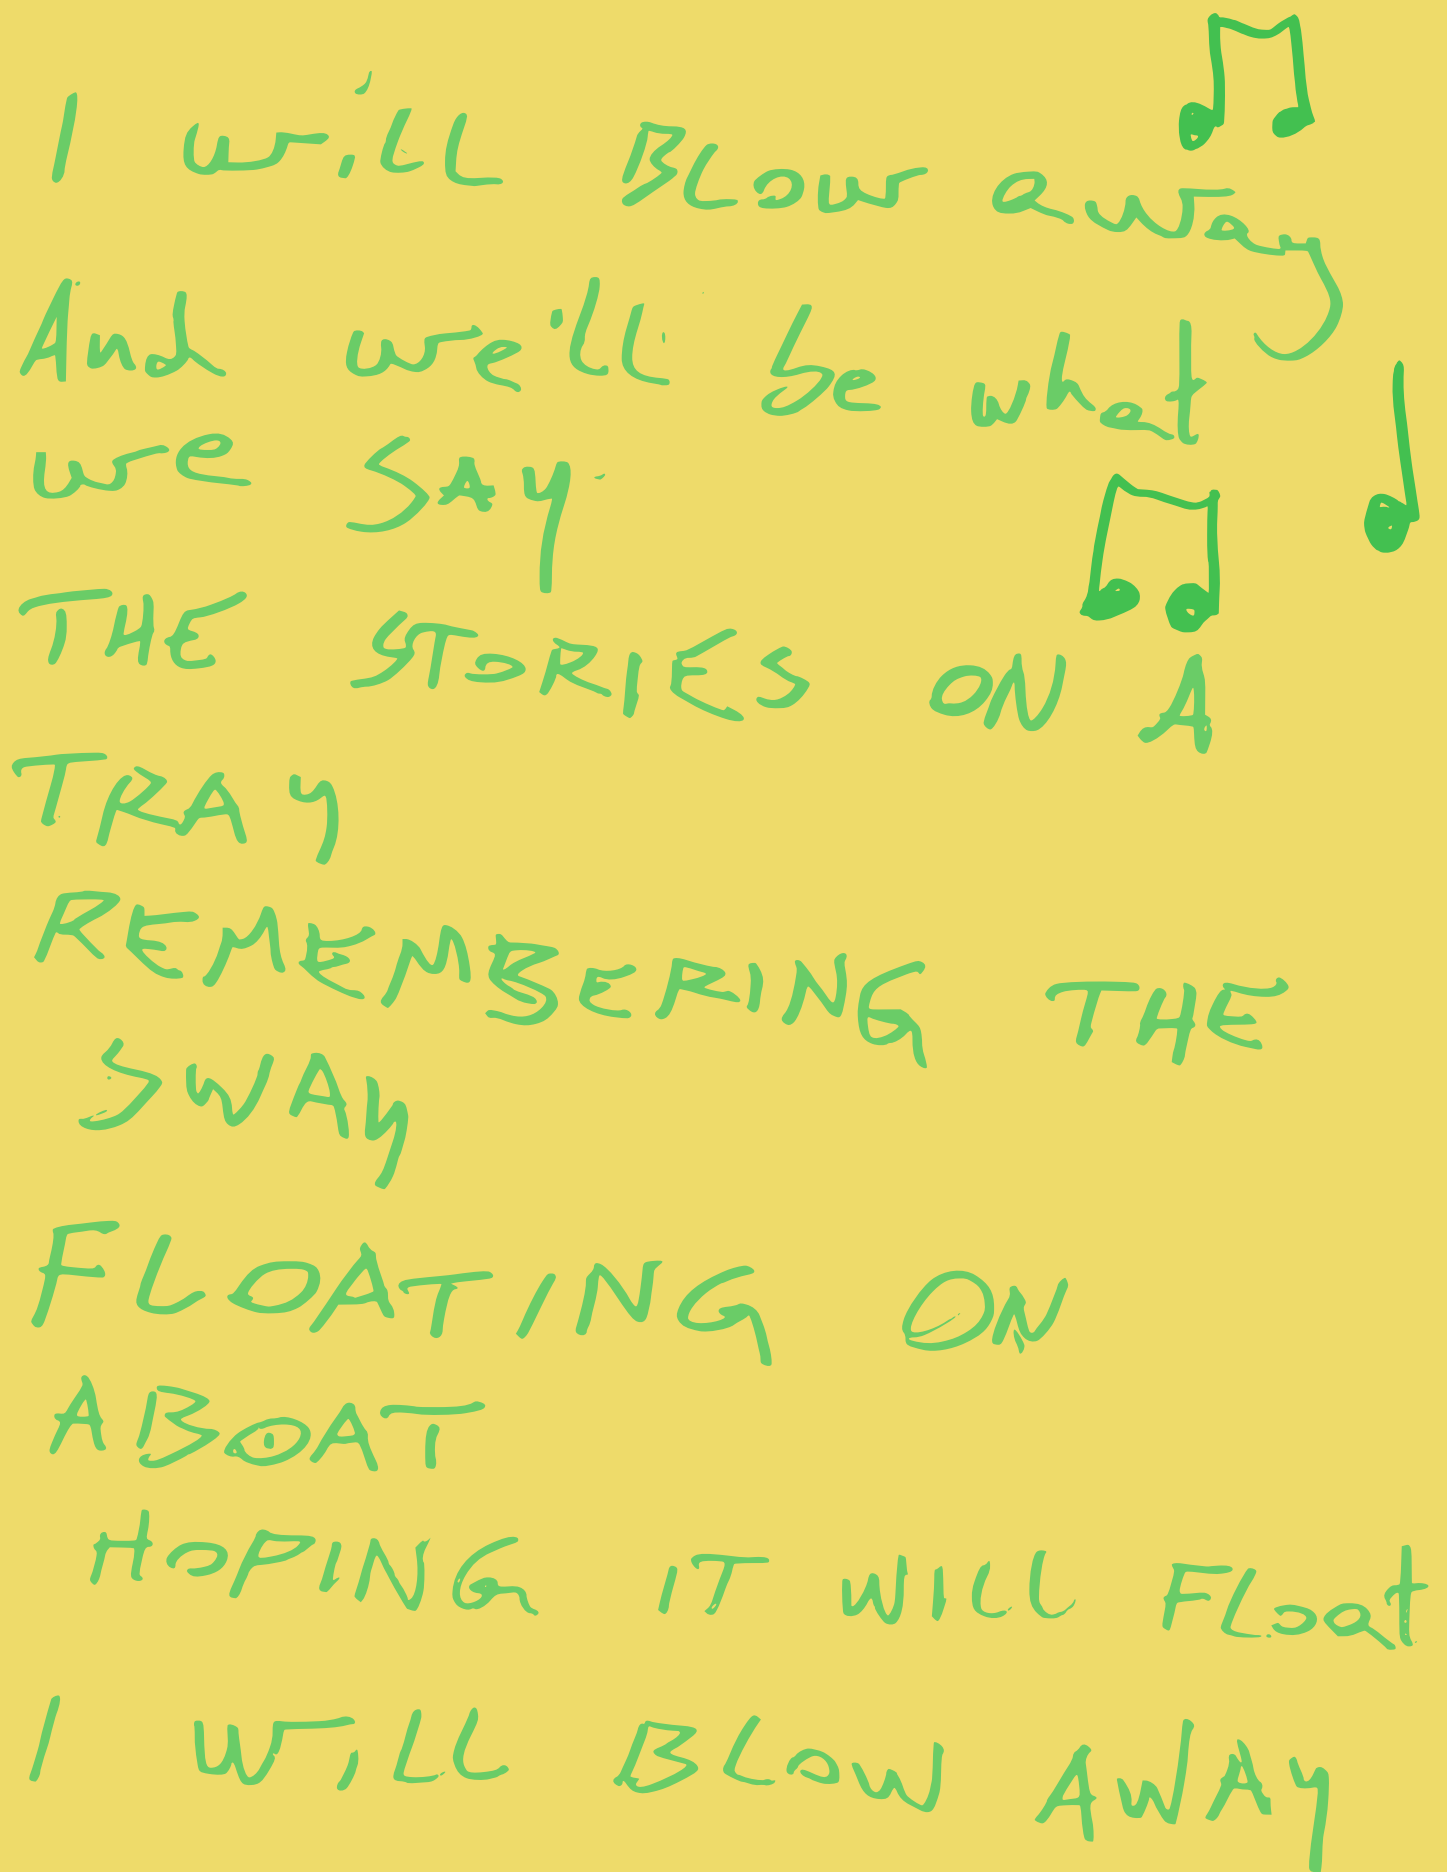 I will BLOW away
And we'll be what
we SAY.
THE STORIES ON A
TRAY
REMEMBERING THE
SWAY
FLOATING ON
A BOAT
HOPING IT WILL FLOat
I WiLL BLOW AWAY